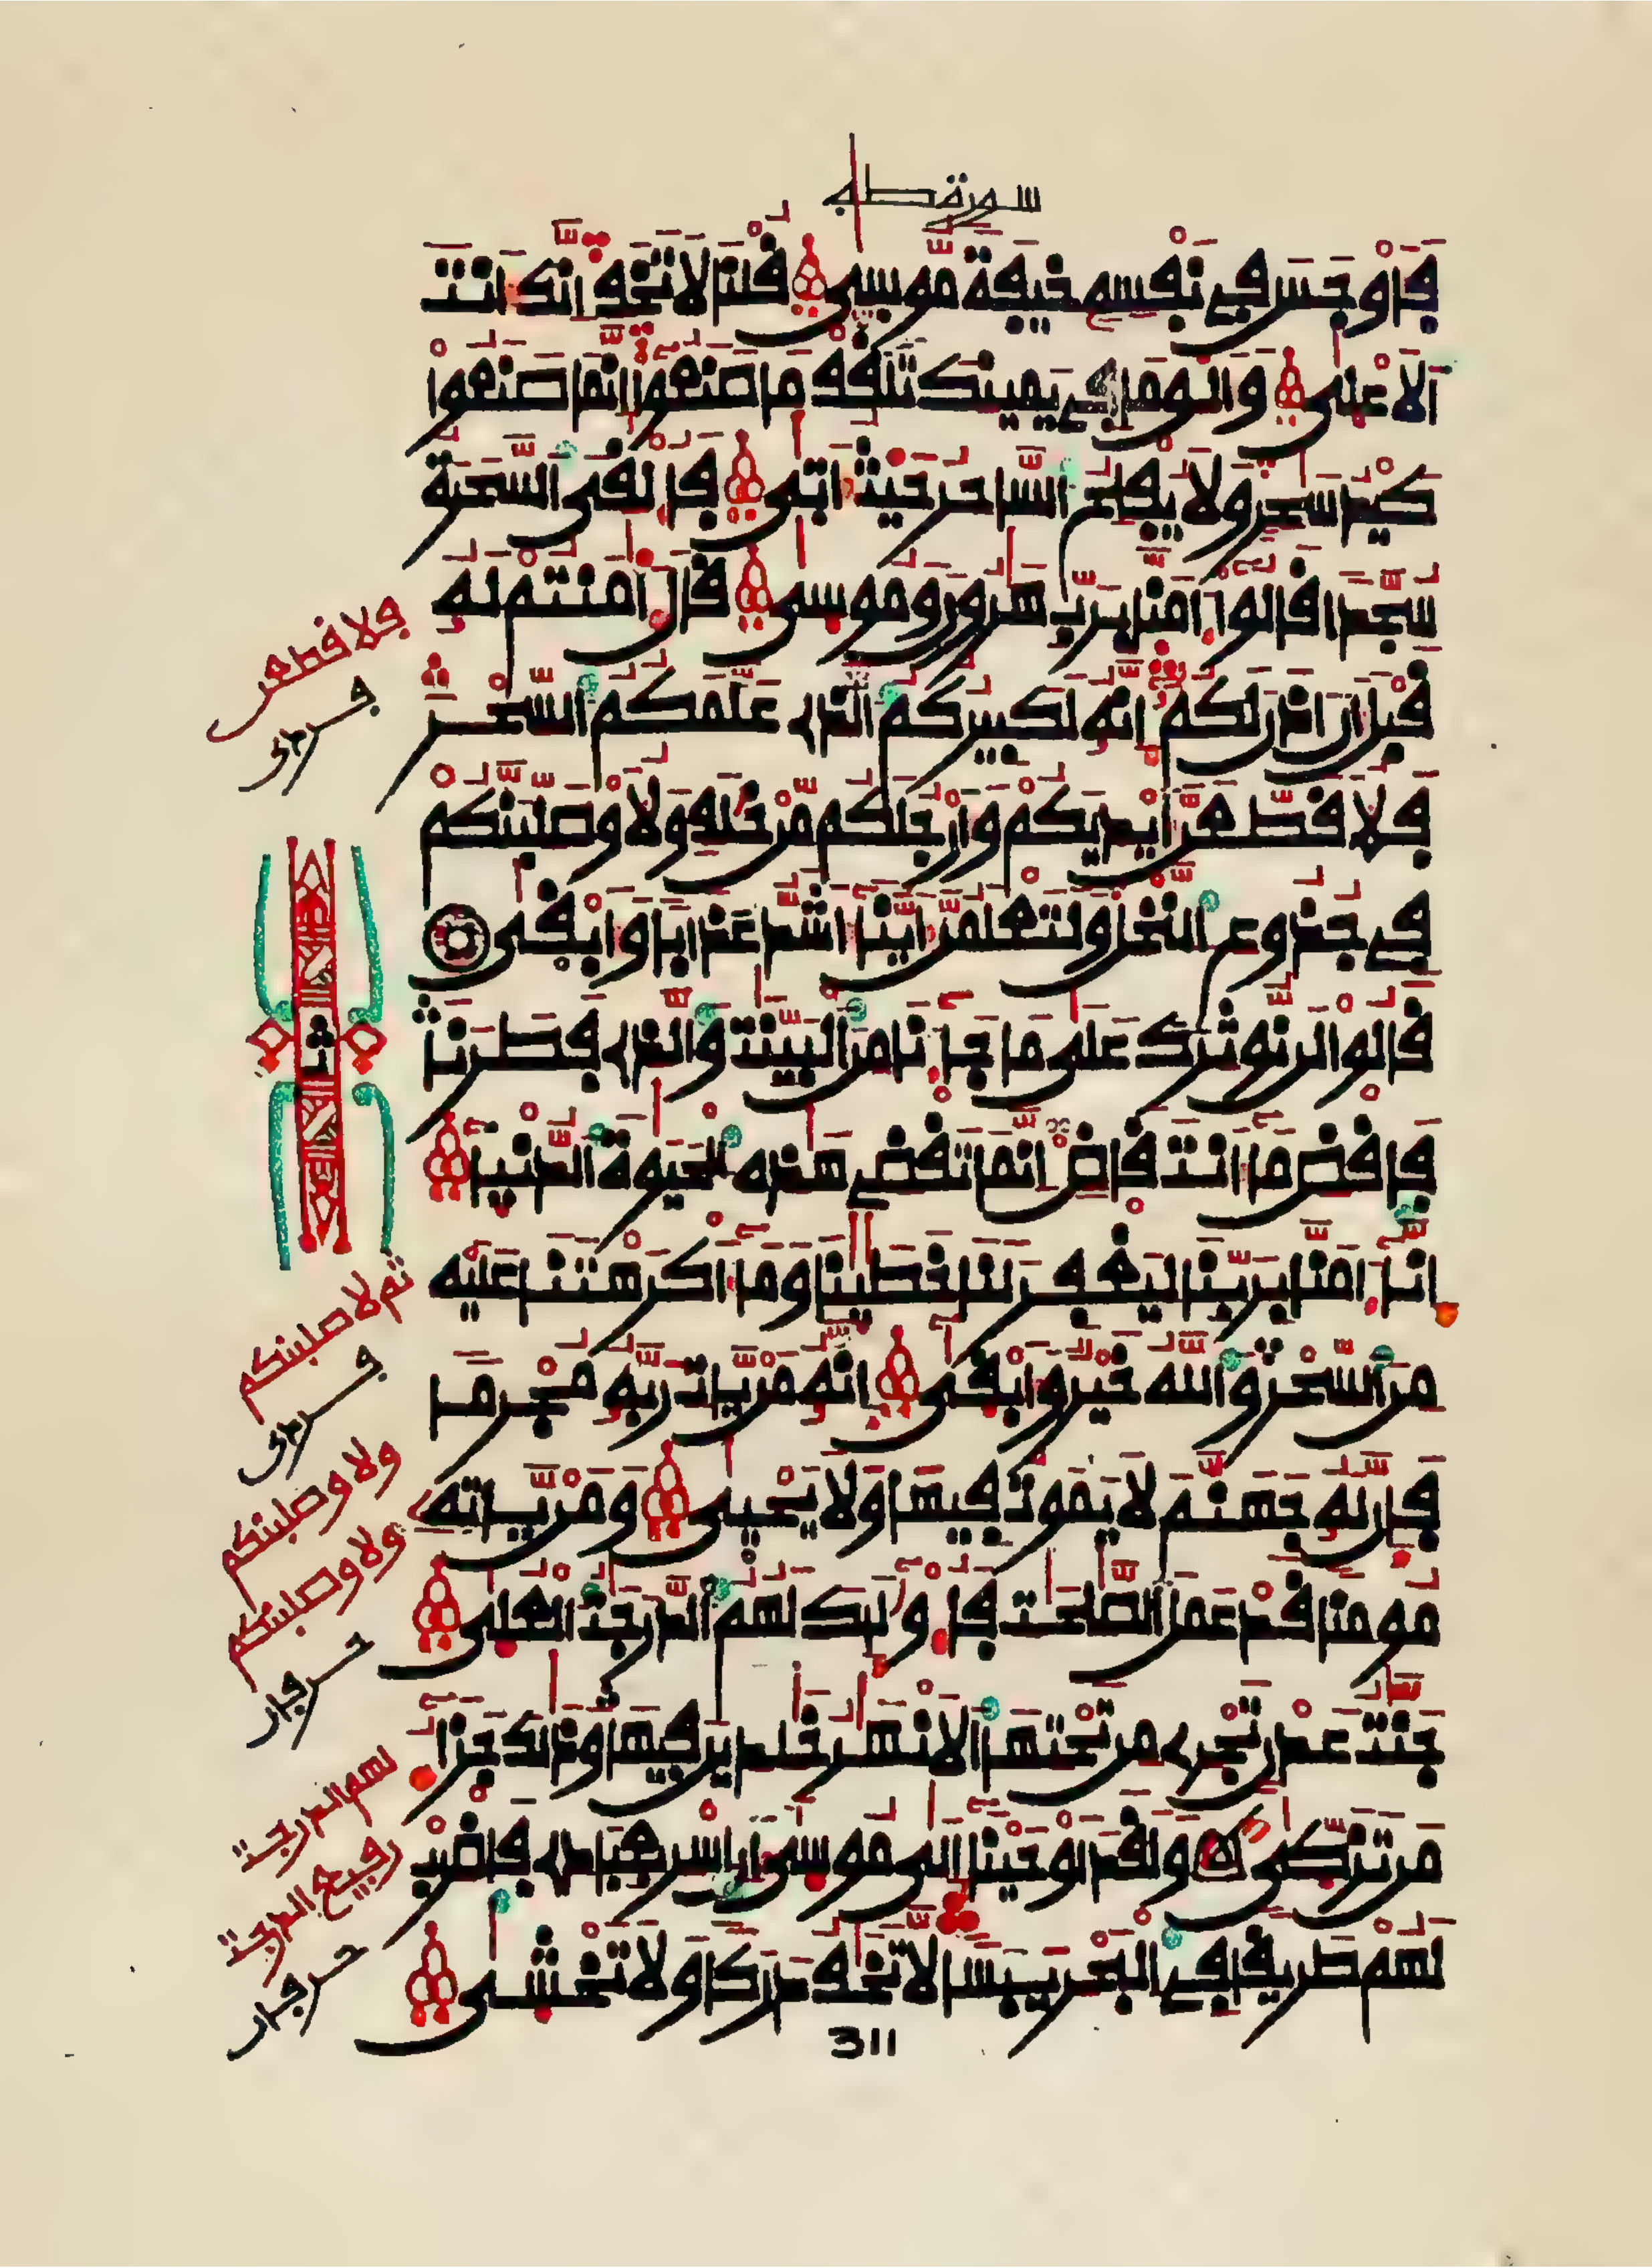 سورة طه
فأوجس في نفسه خيفة موسى قلنا لا تخف إنك أنت
الأعلى وألق ما في يمينك تلقف ما صنعوا إنما صنعوا
كيد سحر ولا يفلح الساحر حيث أتى فألقى السحرة
سجدا قالوا ءامنا برب هرون وموسى قال ءامنتم له
قبل أن اذن لكم إنه لكبيركم الذى علمكم السحر
فلا قطعن أيديكم وأرجلكم من خلف ولا وصلبنكم
في جذوع النخل ولتعلمن أينا أشد عذابا وأبقى
قالوا لن نوثرك على ما جاءنا من البينت والذى فطرنا
فاقض ما أنت قاض إنما تقضى هذه الحيوة الدنيا
إنا ءامنا بربنا ليغفر لنا خطينا وما أكرهتنا عليه
من السحر والله خير وأبقى إنه من يات ربه مجرما
فإن له جهنم لا يموت فيها ولا يحيى ومن ياته
مومنا قد عمل الصلحت فأولئك لهم الدرجت العلى
جنت عدن تجرى من تحتها الأنهر خلدين فيها وذلك جزاء
من تزكى ولقد أوحينا إلى موسى أن اسر بعبادى فاضرب
لهم طريقا في البحر يبسا لا تخف دركا ولا تخشى
فلا قطعن
ث
ثم لا صلبنكم
ولا وصلبنكم
ولا وصلبنكم
لهم الدرجت
رفيع الدرجت
311